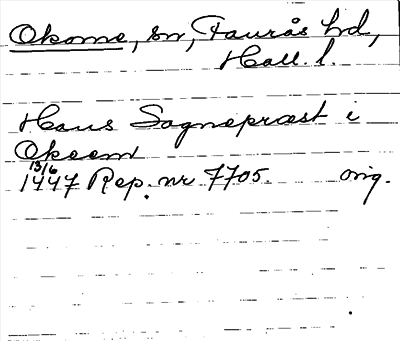 Okome, sn, Faurås hd,
Hall. l.
Hans Sogneprœst i
Okeem
13/6
1447 Rep. nr 7705. orig.